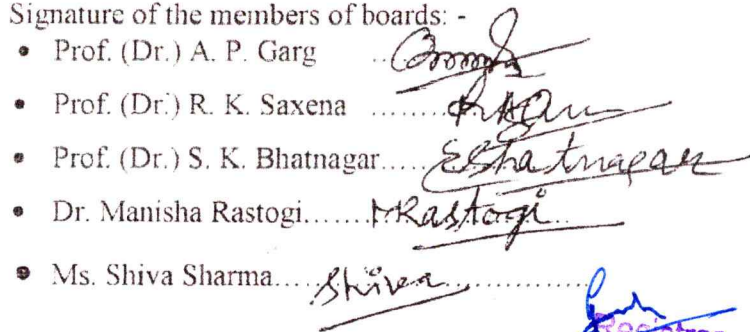 Signature of the members of boards: -
• Prof. (Dr.) A. P. Garg ..
• Prof. (Dr.) R. K. Saxena ........
• Prof. (Dr.) S. K. Bhatnagar..... Bhatnagar
• Dr. Manisha Rastogi....... MRastogi..
• Ms. Shiva Sharma..... Shiva ............
Registrar